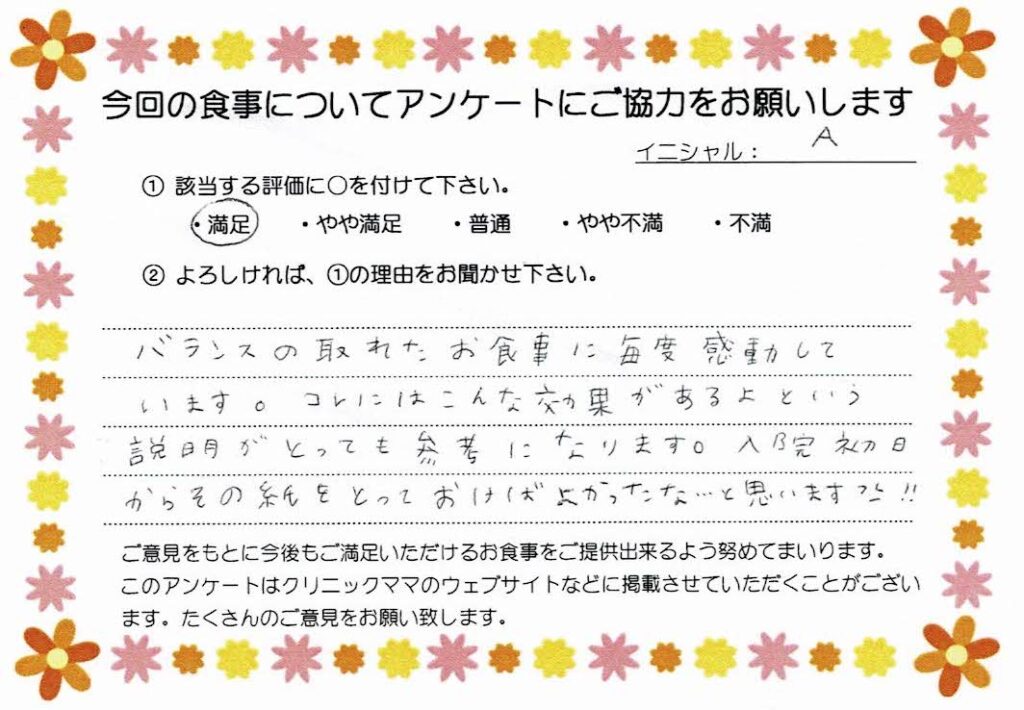 今回の食事についてアンケートにご協力をお願いします
イニシャル： A
① 該当する評価に○を付けて下さい。
・満足 ・やや満足 ・普通 ・やや不満 ・不満
② よろしければ、①の理由をお聞かせ下さい。
バランスの取れたお食事に毎度感動して
います。コレにはこんな効果があるよという
説明がとっても参考になります。入院初日
からその紙をとっておけばよかったな…と思います
ご意見をもとに今後もご満足いただけるお食事をご提供出来るよう努めてまいります。
このアンケートはクリニックママのウェブサイトなどに掲載させていただくことがござい
ます。たくさんのご意見をお願い致します。